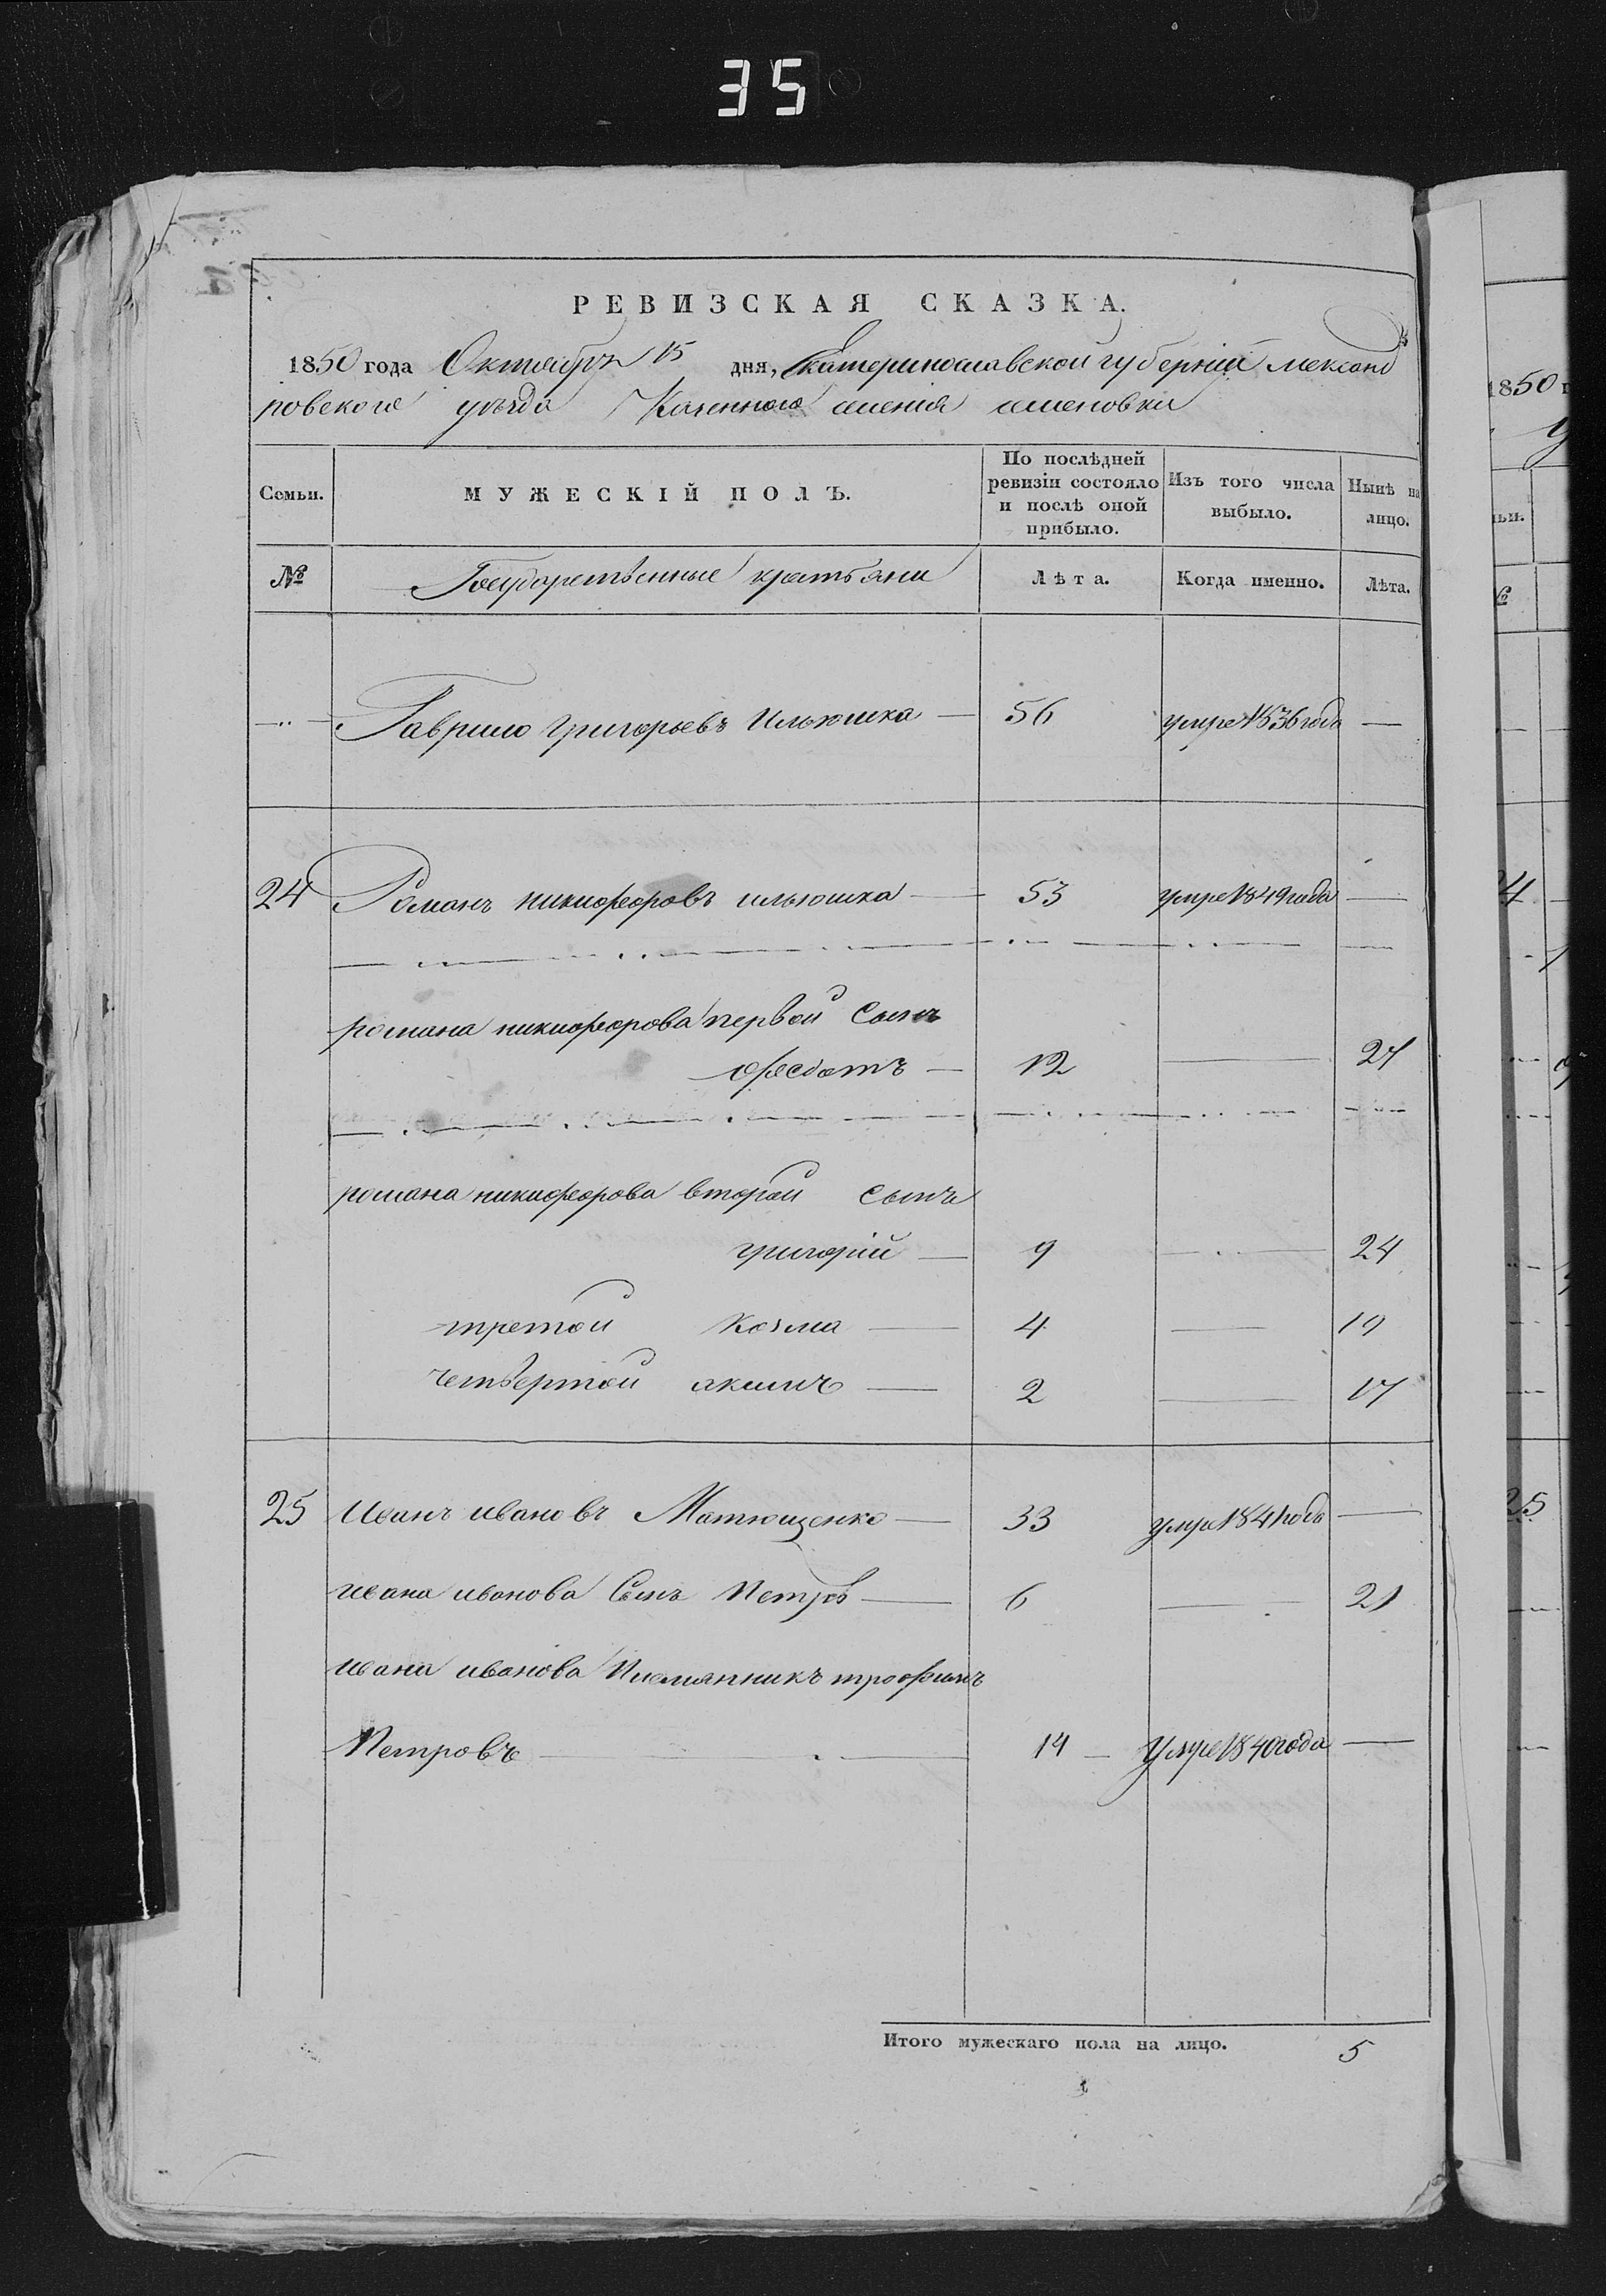 35
РЕВИЗСКАЯ СКАЗКА.
1850 года Октября 15 дня, Екатеринославской губерніи Александ
ровского уѣзда Казенного имения
Семьи. МУЖЕСКІЙ ПОЛЪ. По послѣдней ревизіи состояло и послѣ оной прибыло. Изъ того числа выбыло. Нынѣ на лицо.
№ Государственные крестьяни Лѣта. Когда именно. Лѣта.
Гаврило григорьевъ Ильюшка — 56 умре 1836 года —
24 Романъ никифоровъ ильюшка — 53 умре 1849 года —
романа никифорова первой Сынъ
федотъ — 12 — 27
романа никифорова второй сынъ
григорій — 9 — 24
третой козма — 4 — 19
четвертой акимъ — 2 — 17
25 Иванъ ивановъ Матющенко — 33 умре 1841 года —
ивана иванова Сынъ Петръ — 6 — 21
ивана иванова Племянникъ трофимъ
Петровъ — 14 — Умре 1840 года —
Итого мужескаго пола на лицо. 5
1850 г
ьи.
№
4
25